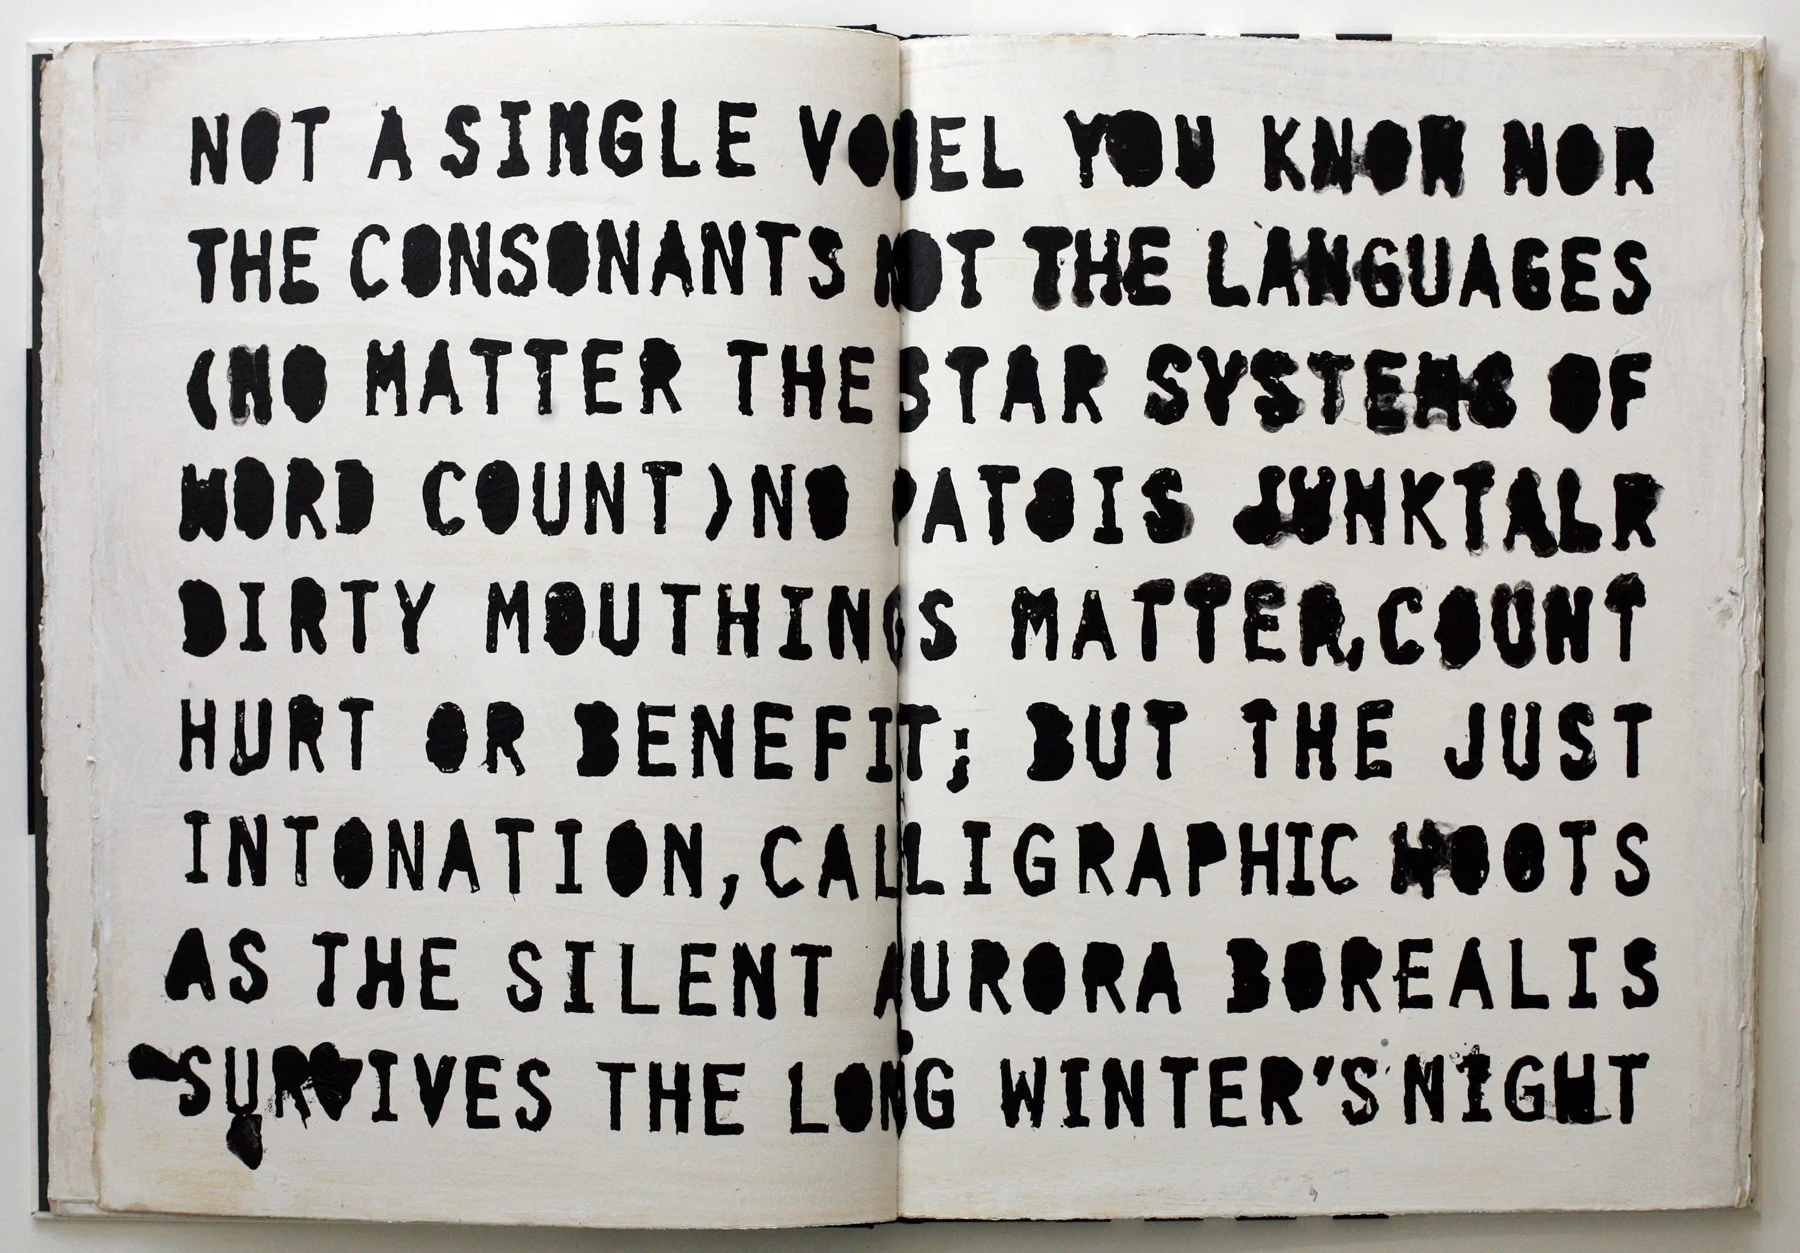 NOT A SINGLE VOWEL YOU KNOW NOR
THE CONSONANTS NOT THE LANGUAGES
(NO MATTER THE STAR SYSTEMS OF
WORD COUNT) NO PATOIS JUNKTALR
DIRTY MOUTHINGS MATTER, COUNT
HURT OR BENEFIT; BUT THE JUST
INTONATION, CALLIGRAPHIC HOOTS
AS THE SILENT AURORA BOREALIS
SURVIVES THE LONG WINTER'S NIGHT